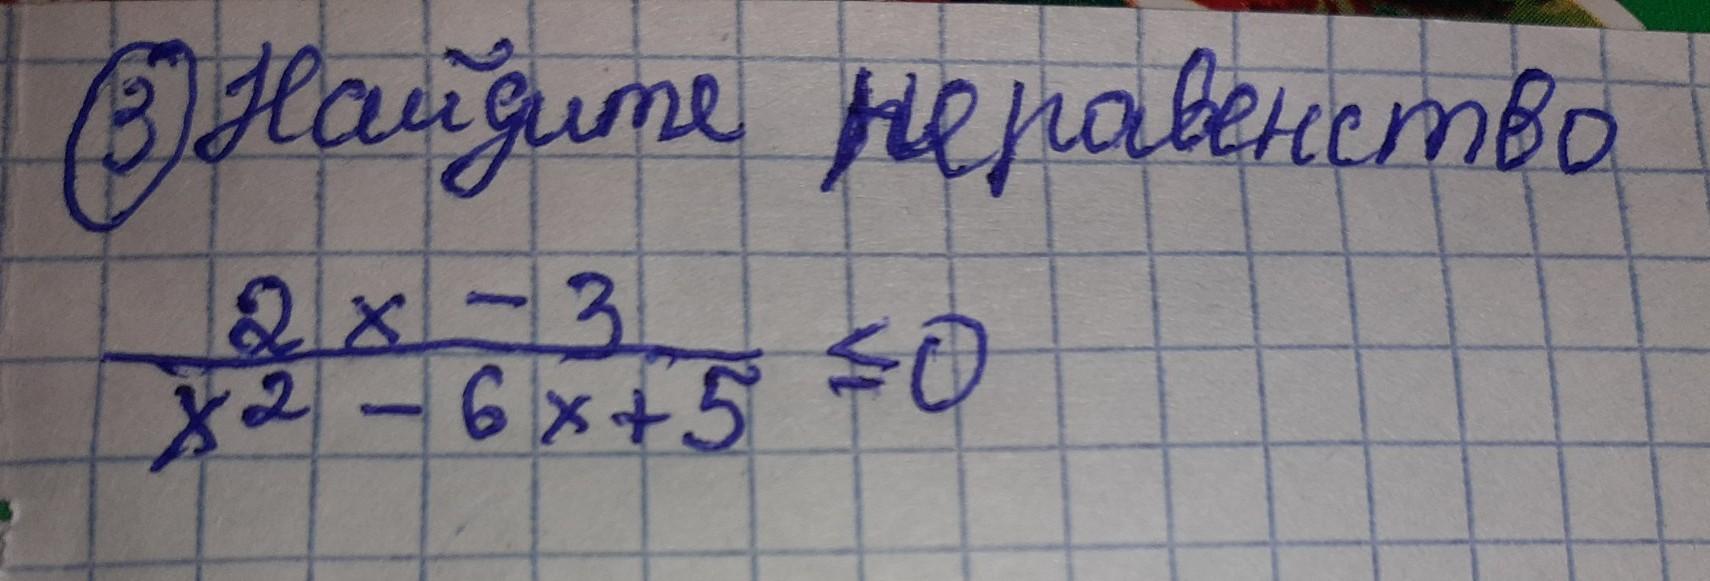 ③ Найдите неравенство
2x - 3
x² - 6x + 5 ≤ 0